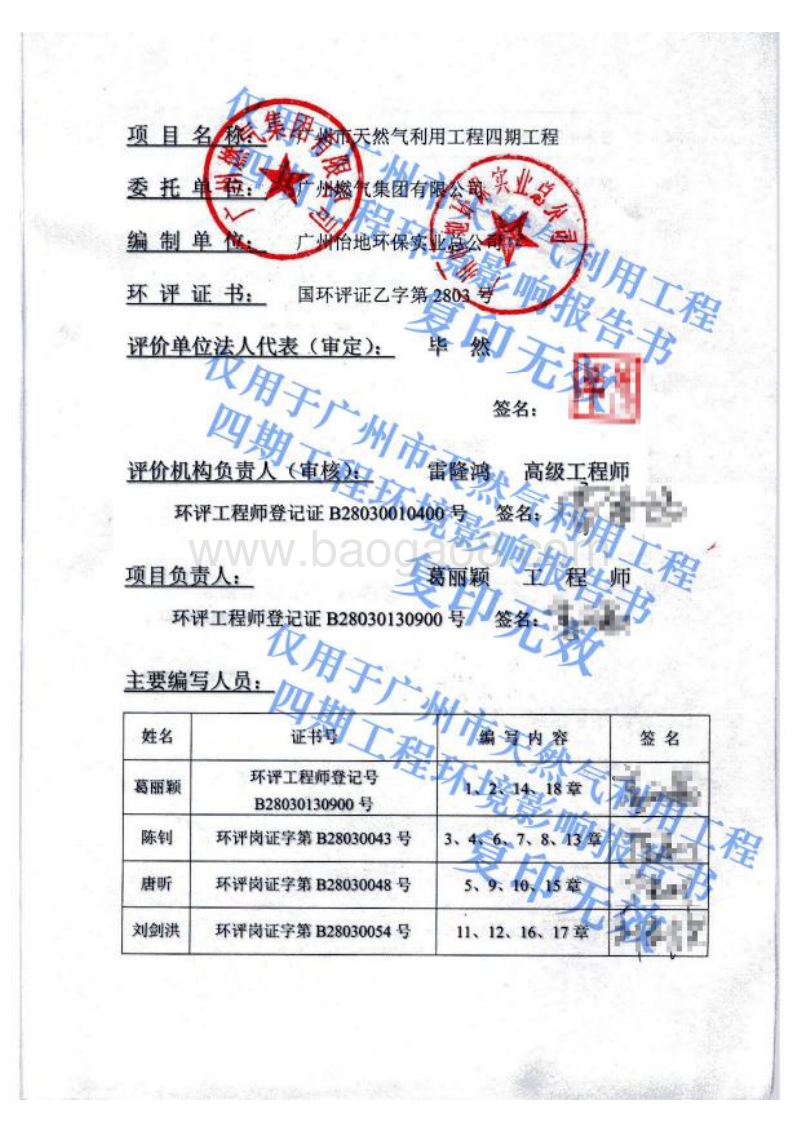 项目名称: 广州市天然气利用工程四期工程
委托单位: 广州燃气集团有限公司
编制单位: 广州怡地环保实业总公司
环评证书: 国环评证乙字第 2803 号
评价单位法人代表（审定）: 毕 然
签名:
评价机构负责人（审核）: 雷隆鸿 高级工程师
环评工程师登记证 B28030010400 号 签名:
www.baogao8.com
项目负责人: 葛丽颖 工 程 师
环评工程师登记证 B28030130900 号 签名:
主要编写人员:
姓名 证书号 编 写 内 容 签 名
葛丽颖 环评工程师登记号 B28030130900 号 1、2、14、18 章
陈钊 环评岗证字第 B28030043 号 3、4、6、7、8、13 章
唐昕 环评岗证字第 B28030048 号 5、9、10、15 章
刘剑洪 环评岗证字第 B28030054 号 11、12、16、17 章
广州燃气集团有限公司
广州怡地环保实业总公司
仅用于广州市天然气利用工程
四期工程环境影响报告书
复印无效
仅用于广州市天然气利用工程
四期工程环境影响报告书
复印无效
仅用于广州市天然气利用工程
四期工程环境影响报告书
复印无效